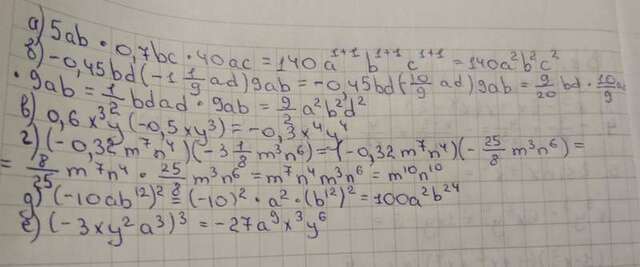 а) 5ab · 0,7bc · 40ac = 140 a¹⁺¹ b¹⁺¹ c¹⁺¹ = 140a²b²c²
б) -0,45bd(-1 1/9 ad)9ab = -0,45bd(10/9 ad)9ab = 9/20 bd · 10/9 ad
· 9ab = 1/2 bdad · 9ab = 9/2 a²b²d²
в) 0,6x³y(-0,5xy³) = -0,3x⁴y⁴
г) (-0,32m⁷n⁴)(-3 1/8 m³n⁶) = (-0,32m⁷n⁴)(-25/8 m³n⁶) =
= 8/25 m⁷n⁴ · 25/8 m³n⁶ = m⁷n⁴m³n⁶ = m¹⁰n¹⁰
д) (-10ab¹²)² = (-10)² · a² · (b¹²)² = 100a²b²⁴
е) (-3xy²a³)³ = -27a⁹x³y⁶